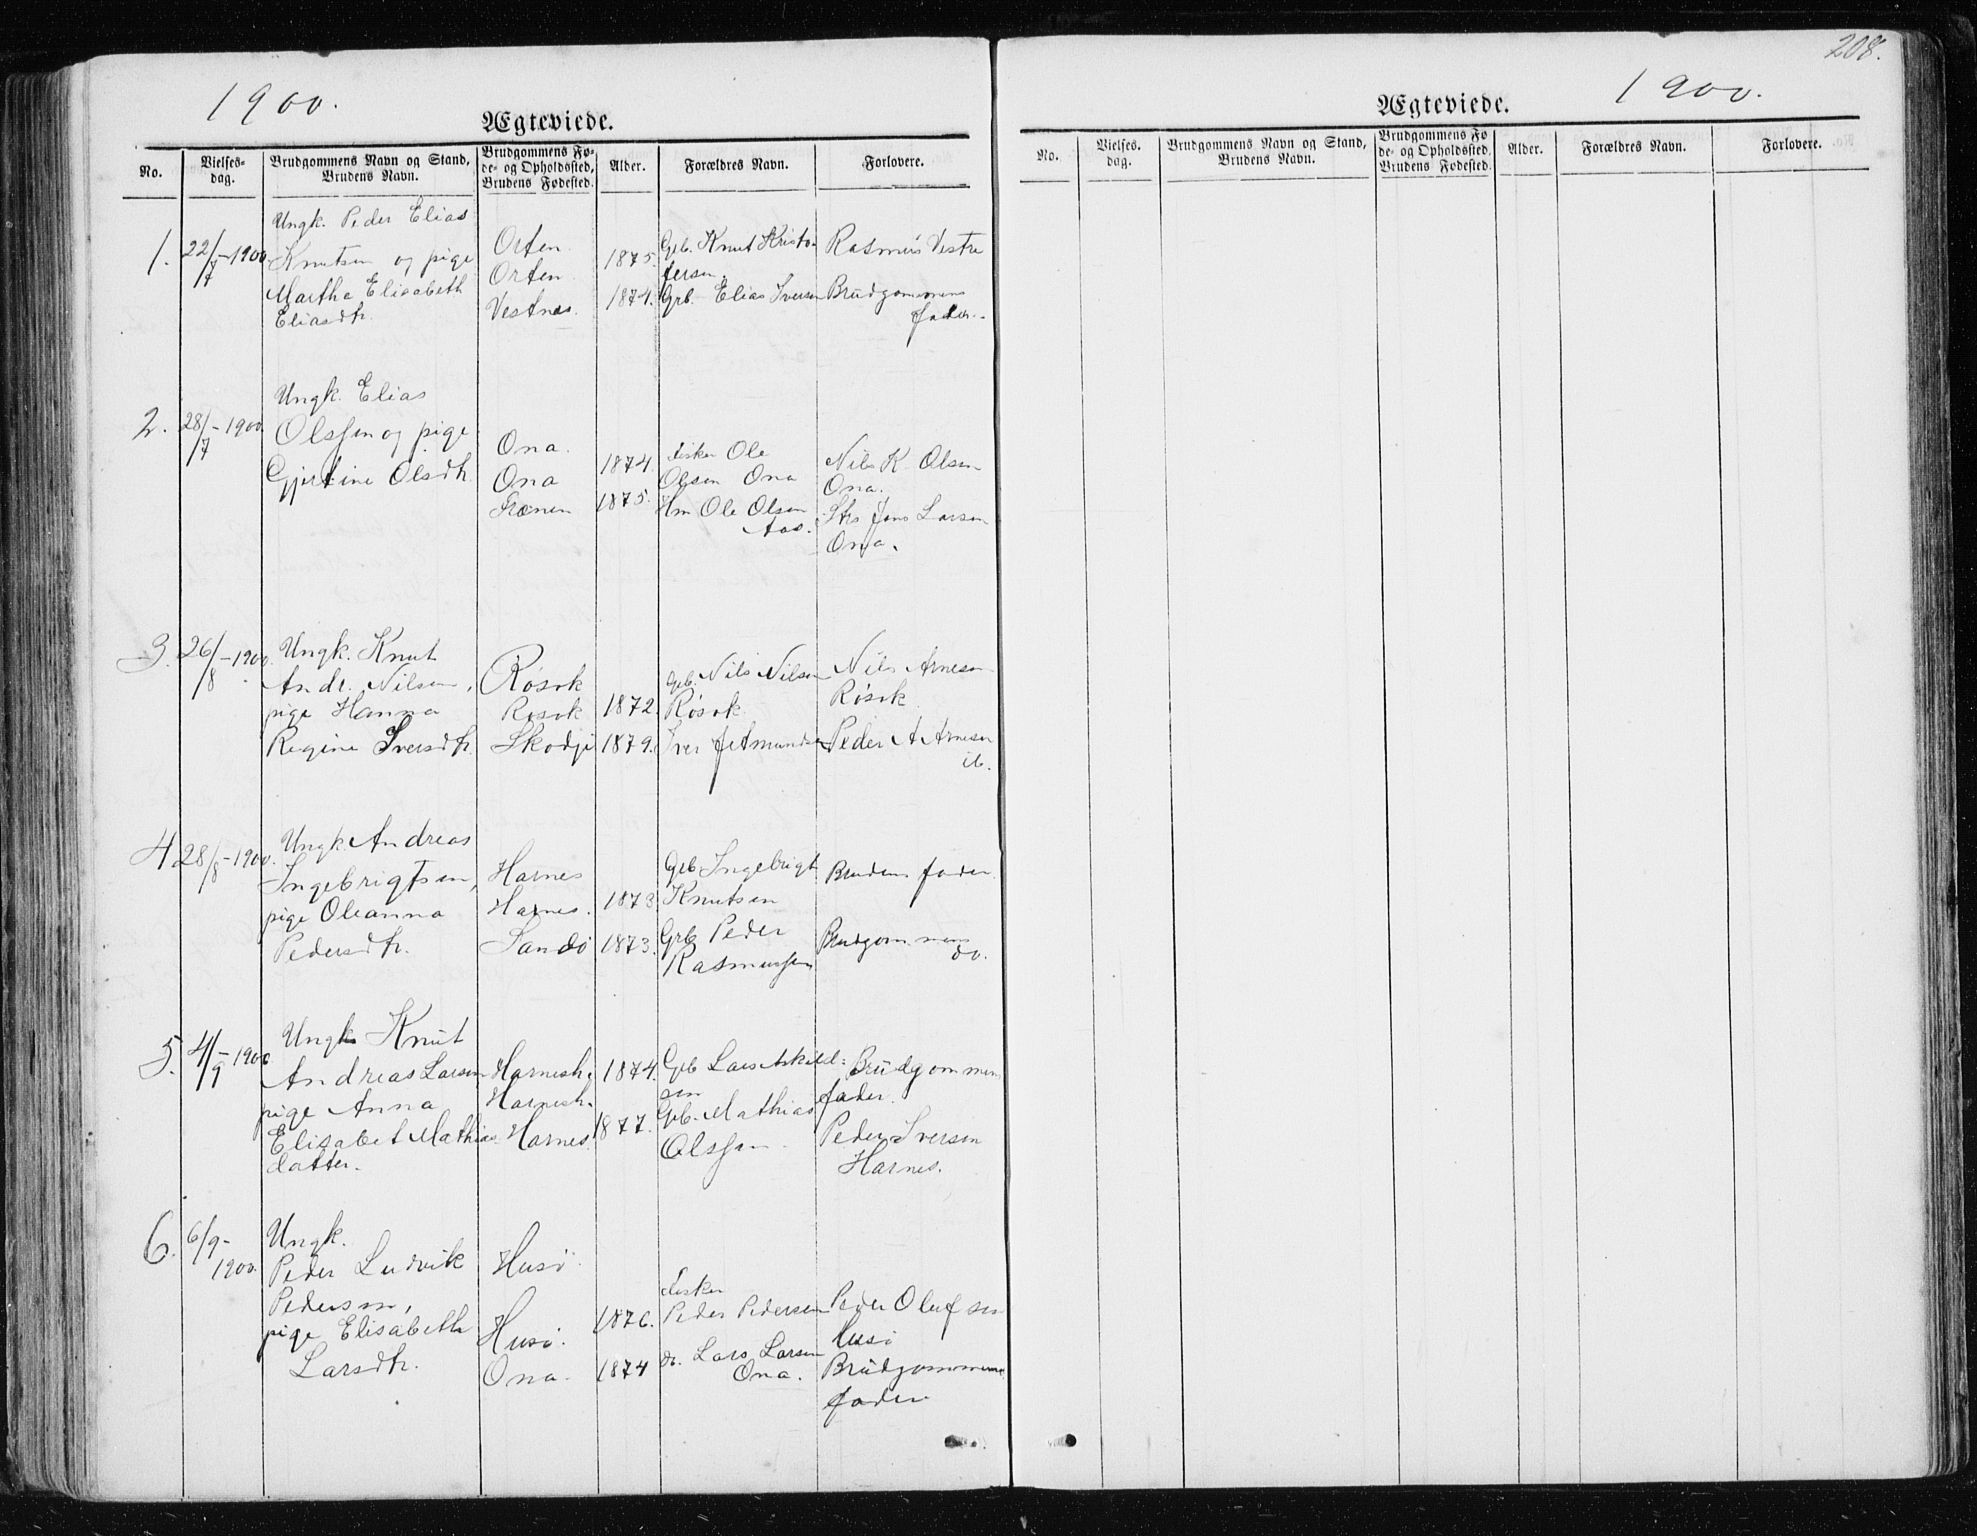 1900.
Ægteviede.
No.
Vielses-
dag.
Brudgommens Navn og Stand,
Brudens Navn.
Brudgommens Fø-
de- og Opholdssted,
Brudens Fødested.
Alder.
Forældres Navn.
Forlovere.
1.
22/7-1900.
Ungk. Peder Elias
Knutsen og pige
Martha Elisabeth
Eliasdtr.
Orten
Orten
Vestnes.
1875.
1874.
Grb. Knut Kristo-
fersen.
Grb. Elias Iversen
Rasmus Vestre
Brudgommens
fader.
2.
28/7-1900.
Ungk. Elias
Olssen og pige
Gjertine Olsdtr.
Ona.
Ona
Frænen
1874.
1875.
fisker Ole
Olsen Ona
Hm Ole Olsen
Aas.
Nils K. Olsen
Ona.
Jens Larsen
Ona.
3.
26/8-1900.
Ungk. Knut
Andr. Nilsen,
pige Hanna
Regine Iversdtr.
Røsok
Røsok
Skodje
1872.
1879.
Grb. Nils Nilsen
Røsok
Iver Amundsen
Nils Arnesen
Røsok
Peder A Arnesen
ib.
4
28/8-1900.
Ungk Andreas
Ingebrigtsen,
pige Oleanna
Pedersdtr.
Harnes
Harnes.
Sandø
1873
1873.
Grb Ingebrigt
Knutsen
Grb Peder
Rasmussen
Brudens fader
Brudgommens
do.
5.
4/9-1900
Ungk Knut
Andreas Larsen
pige Anna
Elisabet Mathias-
datter.
Harnesh.
Harnesh.
Harnes.
1874.
1877.
Grb Lars Askild-
sen
Grb. Mathias
Olssen
Brudgommens
fader.
Peder Iversen
Harnes.
6.
6/9-
1900.
Ungk.
Peder Ludvik
Pedersen,
pige Elisabeth
Larsdtr.
Husø
Husø.
Ona.
1876.
1874
fisker
Peder Pedersen
do. Lars Larsen
Ona.
Peder Olufsen
Husø
Brudgommens
fader
208.
1900.
Ægteviede.
No.
Vielses-
dag.
Brudgommens Navn og Stand,
Brudens Navn.
Brudgommens Fø
de- og Opholdssted,
Brudens Fødested.
Alder.
Forældres Navn.
Forlovere.